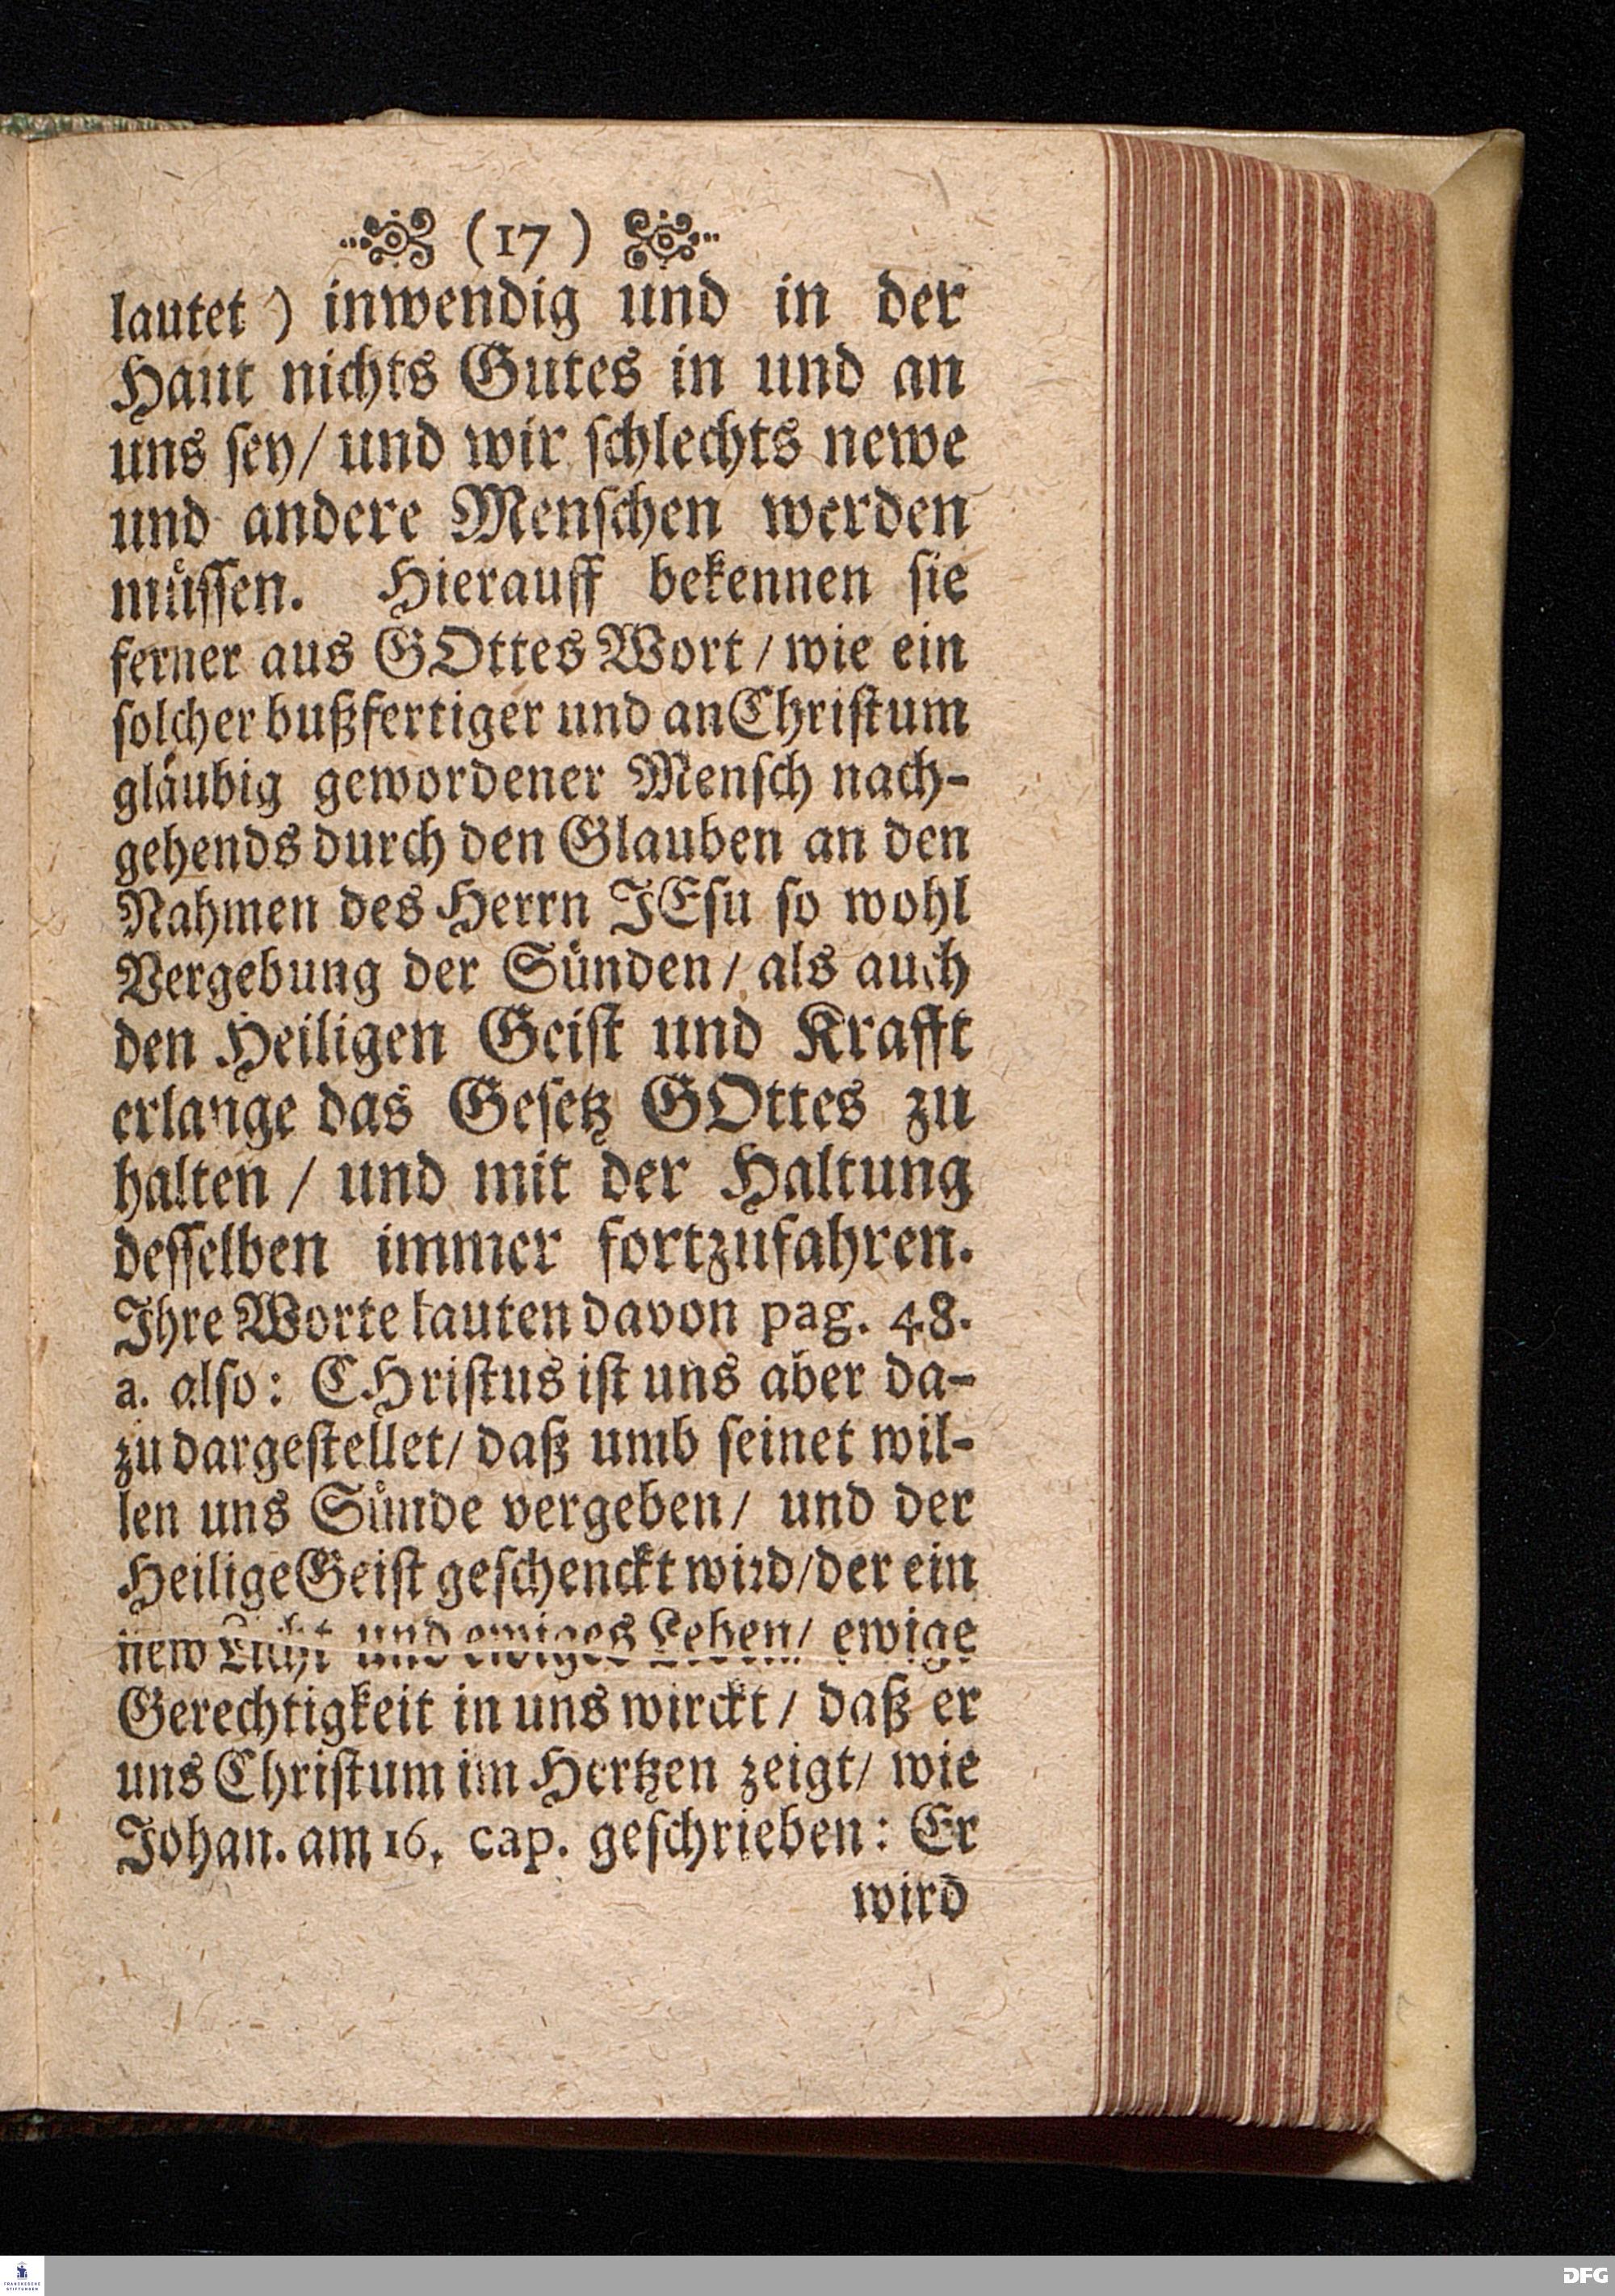 (17)
lautet) inwendig und in der
Haut nichts Gutes in und an
uns sey/ und wir schlechts newe
und andere Menschen werden
müssen. Hierauff bekennen sie
ferner aus GOttes Wort/ wie ein
solcher bußfertiger und an Christum
gläubig gewordener Mensch nach-
gehends durch den Glauben an den
Nahmen des Herrn JEsu so wohl
Vergebung der Sünden/ als auch
den Heiligen Geist und Krafft
erlange das Gesetz GOttes zu
halten/ und mit der Haltung
desselben immer fortzufahren.
Ihre Worte lauten davon pag. 48.
a. also: CHristus ist uns aber da-
zu dargestellet/ daß umb seinet wil-
len uns Sünde vergeben/ und der
Heilige Geist geschenckt wird/ der ein
new Licht und ewiges Leben/ ewige
Gerechtigkeit in uns wirckt/ daß er
uns Christum im Hertzen zeigt/ wie
Johan. am 16. cap. geschrieben: Er
wird
FRANCKESCHE
STIFTUNGEN
DFG